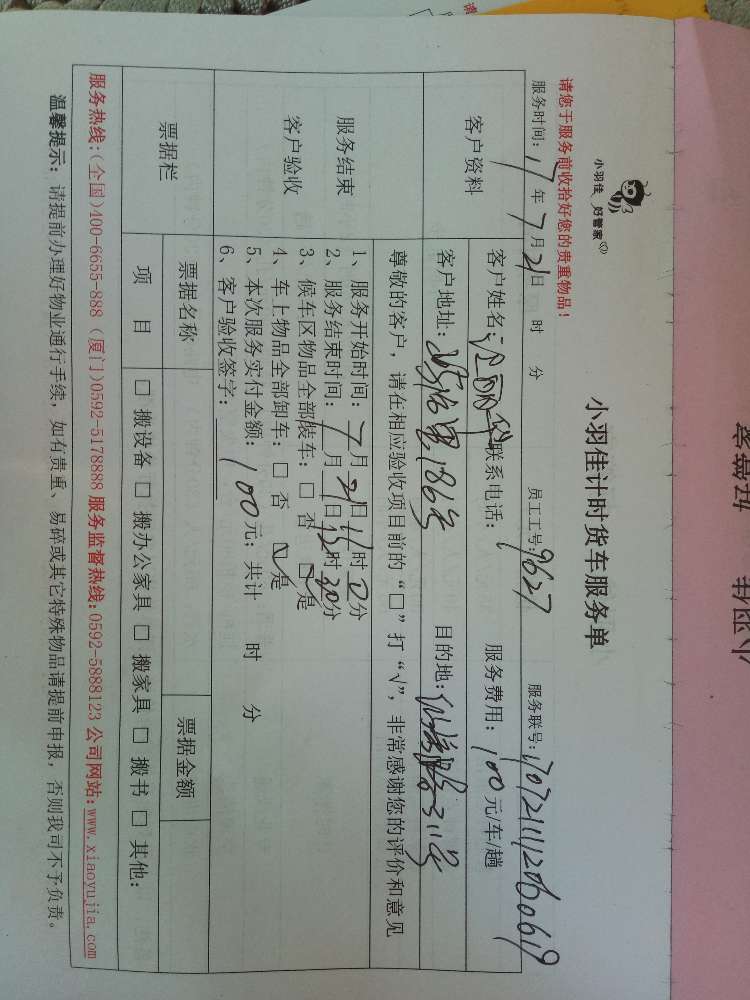 小羽佳 好管家
小羽佳计时货车服务单
请您于服务前收拾好您的贵重物品!
服务时间: 17 年 7 月 21 日 时 分 员工工号: 9627 服务联号:
客户资料
客户姓名: 联系电话: 服务费用: 100 元/车/趟
客户地址: 186号 目的地: 311号
尊敬的客户,请在相应验收项目前的“□”打“√”,非常感谢您的评价和意见
服务结束
客户验收
1、服务开始时间: 7 月 21 日 11 时 分
2、服务结束时间: 7 月 21 日 12 时 30 分
3、候车区物品全部装车: □ 否 ☑ 是
4、车上物品全部卸车: □ 否 ☑ 是
5、本次服务实付金额: 100 元; 共计 时 分
6、客户验收签字:
票据栏
票据名称 票据金额
项 目 □ 搬设备 □ 搬办公家具 □ 搬家具 □ 搬书 □ 其他:
服务热线:(全国)400-6655-888 (厦门)0592-5178888 服务监督热线:0592-5888123 公司网站:www.xiaoyujia.com
温馨提示: 请提前办理好物业通行手续,如有贵重、易碎或其它特殊物品请提前申报,否则我司不予负责。